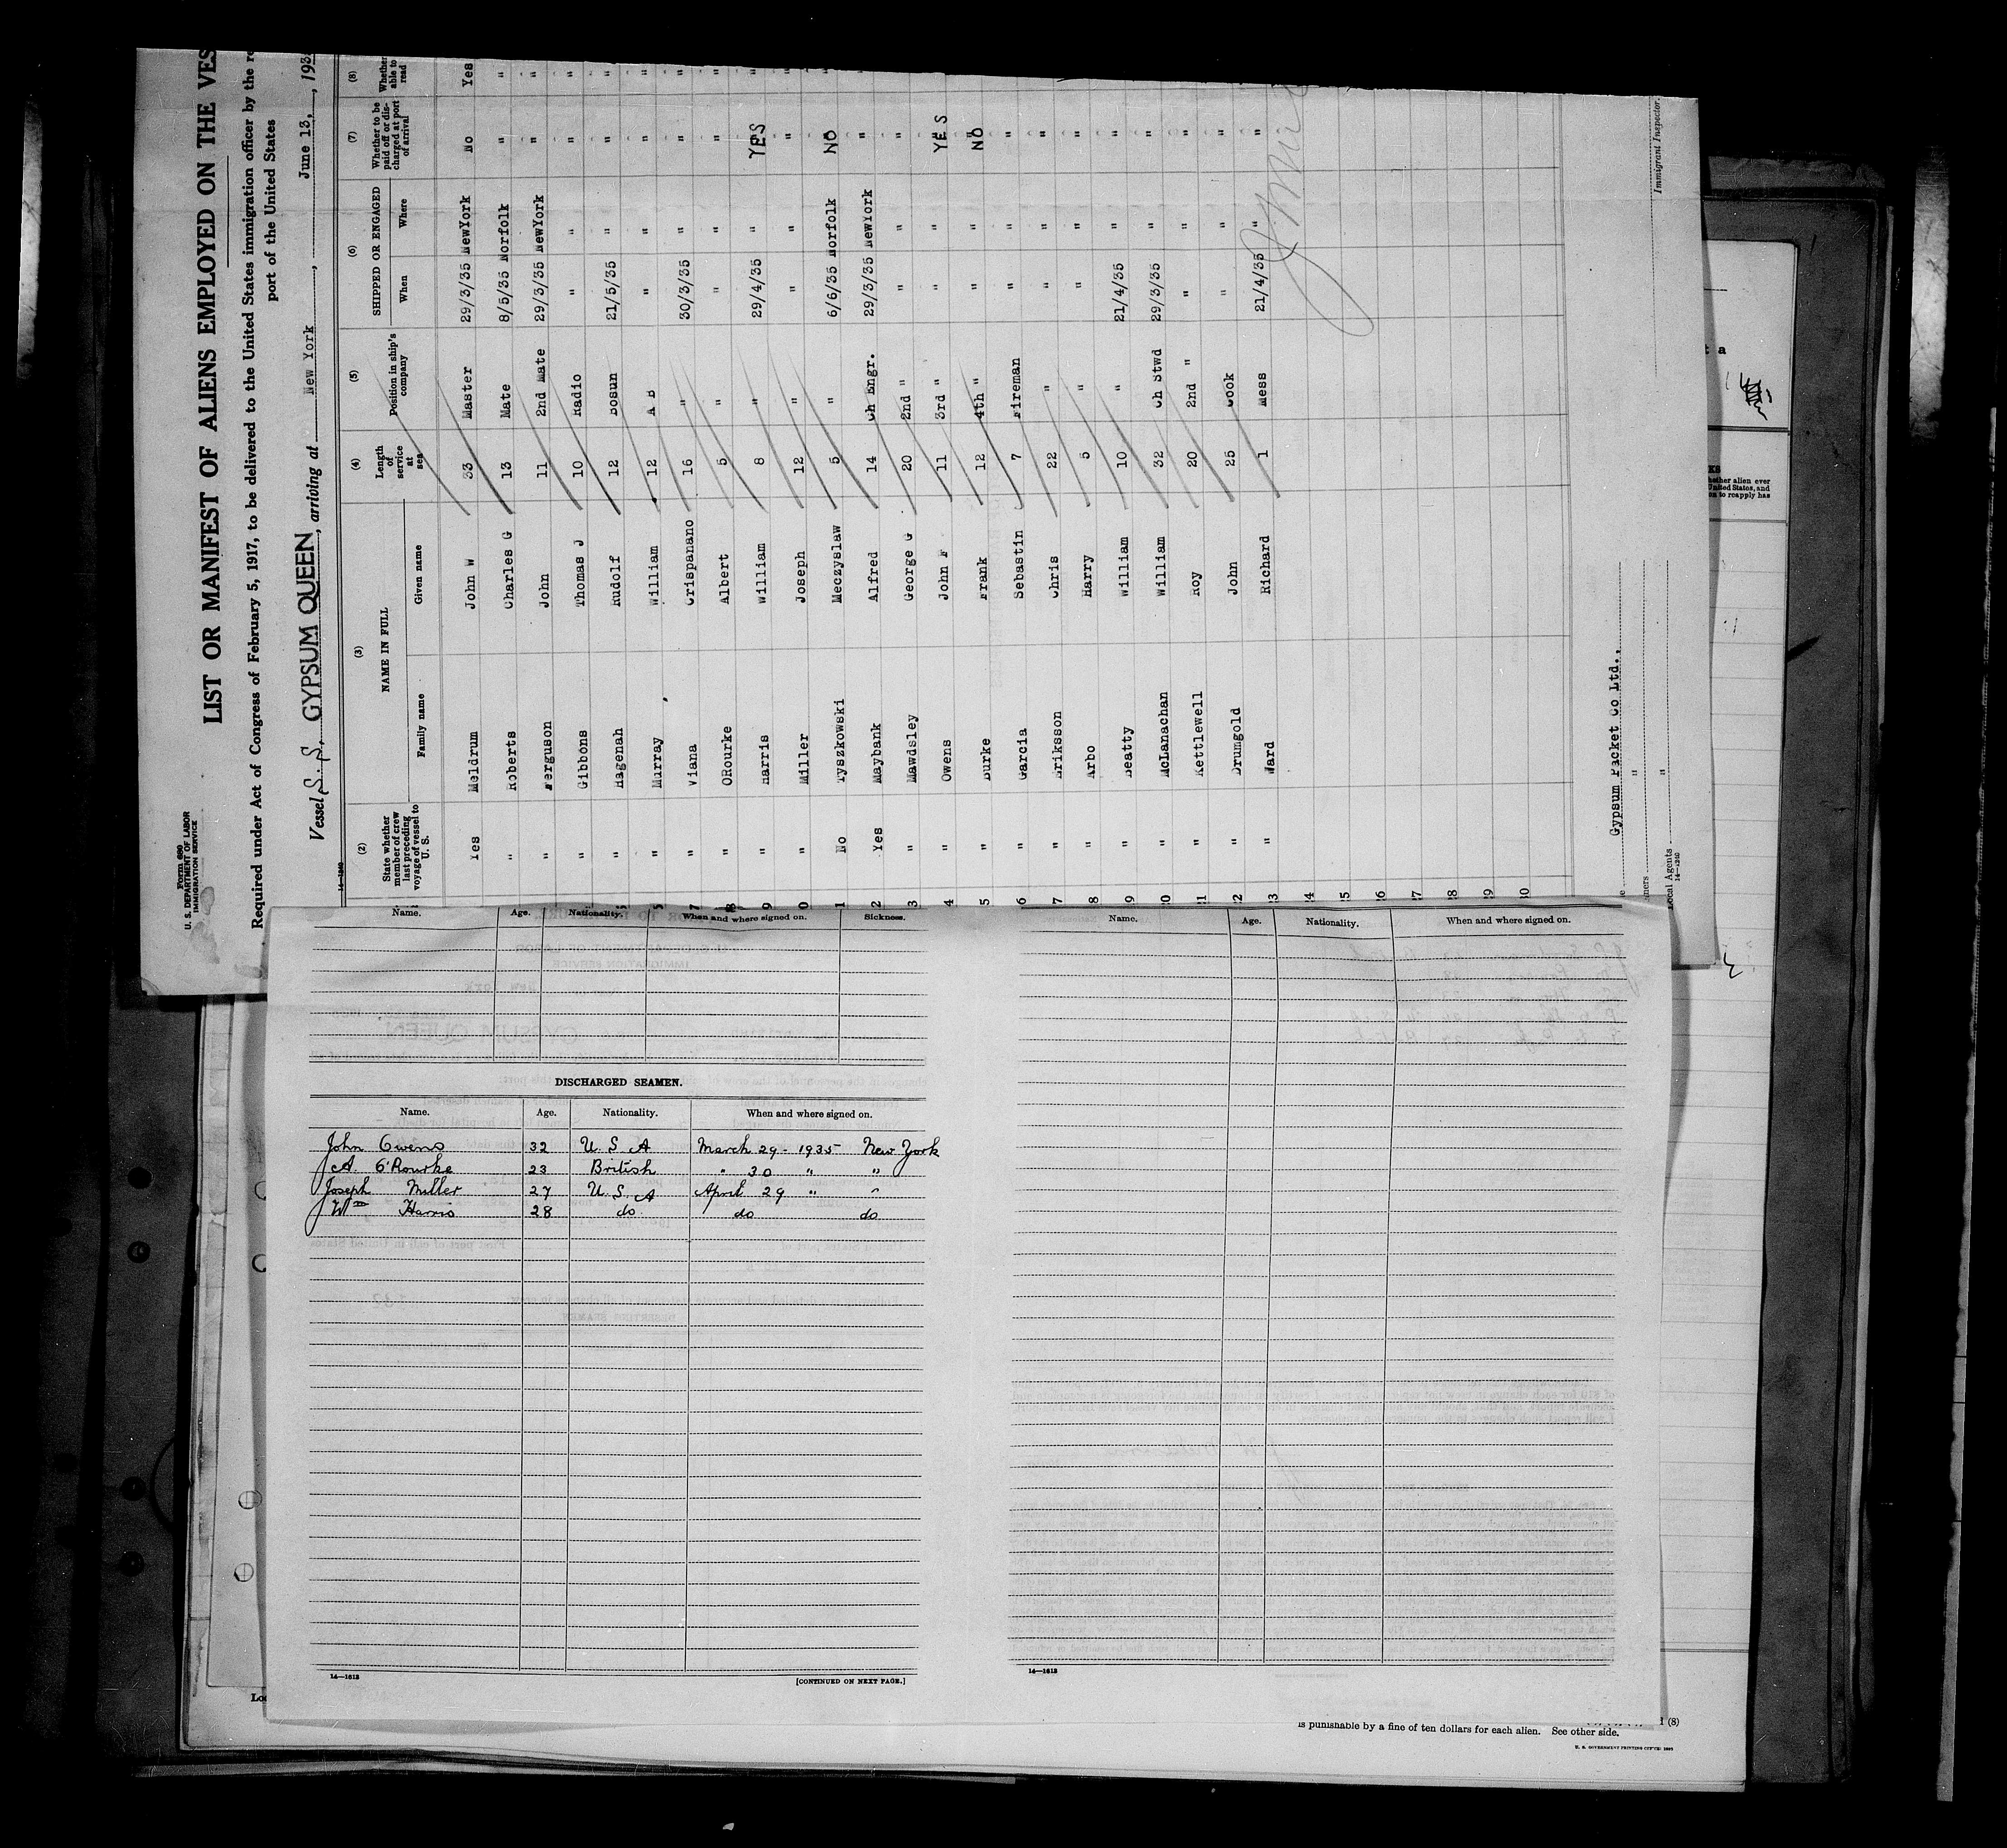 Form 680
U. S. DEPARTMENT OF LABOR
IMMIGRATION SERVICE
LIST OR MANIFEST OF ALIENS EMPLOYED ON THE VES
Required under Act of Congress of February 5, 1917, to be delivered to the United States immigration officer by the re
port of the United States
Vessel S. S. GYPSUM QUEEN, arriving at New York, June 13, 193
14—1240
(2) (3) (4) (5) (6) (7) (8)
State whether member of crew last preceding voyage of vessel to U. S. NAME IN FULL Length of service at sea Position in ship's company SHIPPED OR ENGAGED Whether to be paid off or discharged at port of arrival Whether able to read
Family name Given name When Where
Yes Meldrum John W 33 Master 29/3/35 NewYork No Yes
" Roberts Charles G 13 Mate 8/5/35 Norfolk " "
" Ferguson John 11 2nd Mate 29/3/35 NewYork " "
" Gibbons Thomas J 10 Radio " " " "
" Hagenah Rudolf 12 Bosun 21/5/35 " " "
" Murray William 12 A B " " " "
7 " Viana Crispanano 16 " 30/3/35 " " "
8 " ORourke Albert 5 " " " " "
9 " Harris William 8 " 29/4/35 " YES "
0 " Miller Joseph 12 " " " " "
1 No Tyszkowski Meczyslaw 5 " 6/6/35 Norfolk NO "
2 Yes Maybank Alfred 14 Ch Engr. 29/3/35 NewYork " "
3 " Mawdsley George G 20 2nd " " " "
4 " Owens John F 11 3rd " " " YES
5 " Burke Frank 12 4th " " " NO
6 " Garcia Sebastin 7 Fireman " " "
7 " Eriksson Chris 22 " " " "
8 " Arbo Harry 5 " " " "
19 " Beatty William 10 " 21/4/35 " "
20 " McLanachan William 32 Ch Stwd 29/3/35 " "
21 " Kettlewell Roy 20 2nd " " " "
22 " Drumgold John 25 Cook " " "
23 " Ward Richard 1 Mess 21/4/35 " "
24
25
26
27
28
29
30
Gypsum Packet Co Ltd.,
"
Local Agents "
14—1240
Immigrant Inspector.
Name. Age. Nationality. When and where signed on. Sickness.
DISCHARGED SEAMEN.
Name. Age. Nationality. When and where signed on.
John Owens 32 U. S. A March 29 - 1935 New York
A. O'Rourke 23 British " 30 " "
Joseph Miller 27 U. S. A April 29 " "
Wm Harris 28 do do do
14—1613
[CONTINUED ON NEXT PAGE.]
Name. Age. Nationality. When and where signed on.
14—1613
t a
KS
hether alien ever
United States, and
on to reapply has
Loc
is punishable by a fine of ten dollars for each alien. See other side.
(8)
U. S. GOVERNMENT PRINTING OFFICE: